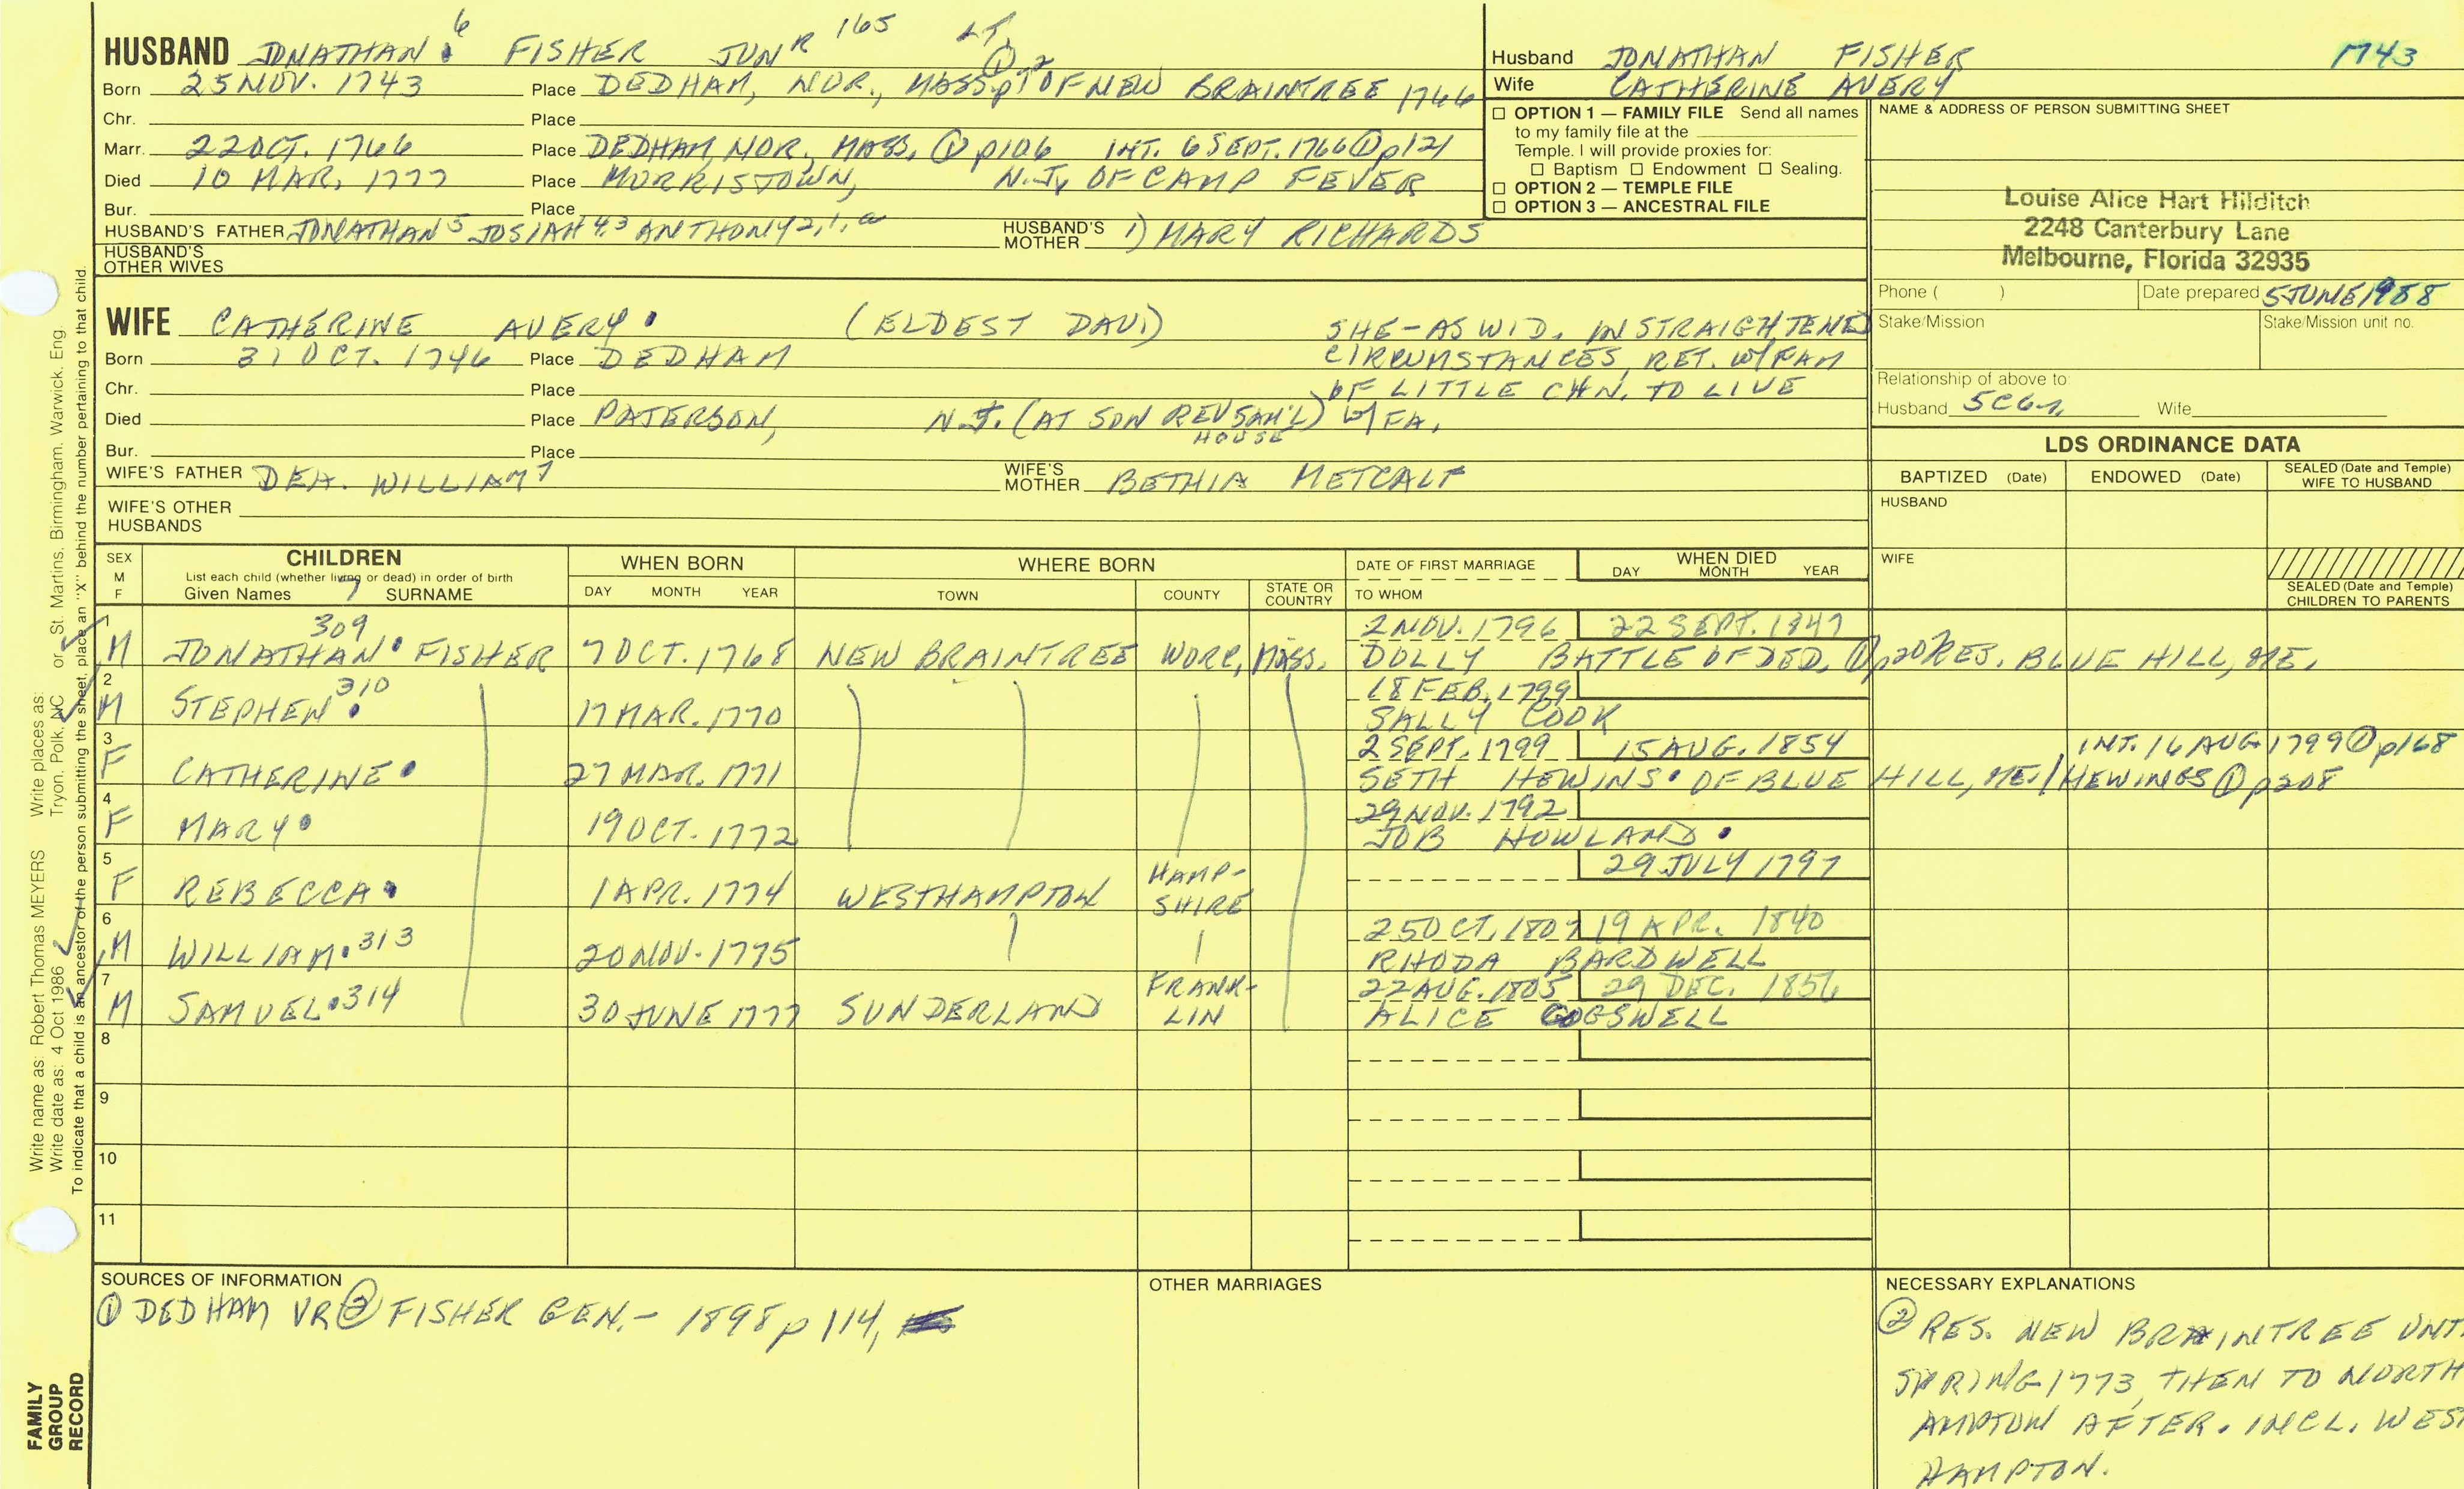 HUSBAND JONATHAN 6 FISHER JUNR 165 LT.
Born 25 NOV. 1743 Place DEDHAM, NOR., MASS. ① p2 OF NEW BRAINTREE 1766
Chr. Place
Marr. 22 OCT. 1766 Place DEDHAM, NOR., MASS. ① p106 INT. 6 SEPT. 1766 ① p121
Died 10 MAR. 1777 Place MORRISTOWN, N.J. OF CAMP FEVER
Bur. Place
HUSBAND'S FATHER JONATHAN 5 JOSIAH 4,3 ANTHONY 2,1,a HUSBAND'S MOTHER 1) MARY RICHARDS
HUSBAND'S OTHER WIVES
Husband JONATHAN FISHER 1743
Wife CATHERINE AVERY
☐ OPTION 1 — FAMILY FILE Send all names
to my family file at the
Temple. I will provide proxies for:
☐ Baptism ☐ Endowment ☐ Sealing.
☐ OPTION 2 — TEMPLE FILE
☐ OPTION 3 — ANCESTRAL FILE
NAME & ADDRESS OF PERSON SUBMITTING SHEET
Louise Alice Hart Hilditch
2248 Canterbury Lane
Melbourne, Florida 32935
Phone ( ) Date prepared 5 JUNE 1988
Stake/Mission Stake/Mission unit no.
Relationship of above to:
Husband 5C6R Wife
WIFE CATHERINE AVERY (ELDEST DAU)
Born 31 OCT. 1746 Place DEDHAM
Chr. Place
Died Place PATERSON, N.J. (AT SON REV SAM'L) HOUSE
Bur. Place
SHE-AS WID. IN STRAIGHTENED
CIRCUMSTANCES, RET. W/FAM
OF LITTLE CHN. TO LIVE
W/ FA.
WIFE'S FATHER DEA. WILLIAM WIFE'S MOTHER BETHIA METCALF
WIFE'S OTHER HUSBANDS
LDS ORDINANCE DATA
BAPTIZED (Date) ENDOWED (Date) SEALED (Date and Temple) WIFE TO HUSBAND
HUSBAND
WIFE
SEALED (Date and Temple) CHILDREN TO PARENTS
SEX M F
CHILDREN
List each child (whether living or dead) in order of birth
Given Names 7 SURNAME
WHEN BORN DAY MONTH YEAR
WHERE BORN TOWN COUNTY STATE OR COUNTRY
DATE OF FIRST MARRIAGE TO WHOM
WHEN DIED DAY MONTH YEAR
1 309 2 NOV. 1796 22 SEPT. 1847
M JONATHAN FISHER 7 OCT. 1768 NEW BRAINTREE WORC, MASS. DOLLY BATTLE OF DED. ① p20 RES. BLUE HILL, ME.
2 310 18 FEB. 1799
M STEPHEN 17 MAR. 1770 SALLY COOK
3 2 SEPT. 1799 15 AUG. 1854 INT. 16 AUG 1799 ① p168
F CATHERINE 27 MAR. 1771 SETH HEWINS OF BLUE HILL, ME. / HEWINGS ① p208
4 29 NOV. 1792
F MARY 19 OCT. 1772 JOB HOWLAND
5 29 JULY 1797
F REBECCA 1 APR. 1774 WESTHAMPTON HAMP-SHIRE
6 25 OCT. 1807 19 APR. 1840
M WILLIAM 313 20 NOV. 1775 RHODA BARDWELL
7 22 AUG. 1805 29 DEC. 1856
M SAMUEL 314 30 JUNE 1777 SUNDERLAND FRANK-LIN ALICE COGSWELL
8
9
10
11
SOURCES OF INFORMATION
① DEDHAM VR ② FISHER GEN.- 1898 p 114,
OTHER MARRIAGES
NECESSARY EXPLANATIONS
② RES. NEW BRAINTREE UNT
SPRING 1773, THEN TO NORTH
AMPTON AFTER. INCL. WEST
HAMPTON.
Write name as: Robert Thomas MEYERS Write places as: Tryon. Polk, NC or St. Martins. Birmingham. Warwick. Eng.
Write date as: 4 Oct 1986
To indicate that a child is an ancestor of the person submitting the sheet, place an "X" behind the number pertaining to that child.
FAMILY
GROUP
RECORD